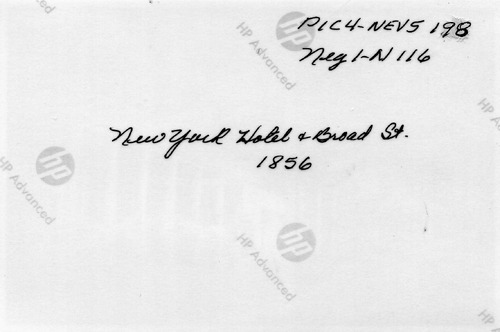 PIC4-NEV5 198
Neg 1-N 116
New York Hotel & Broad St.
1856
HP Advanced
HP Advanced
HP Advanced
HP Advanced
HP Advanced